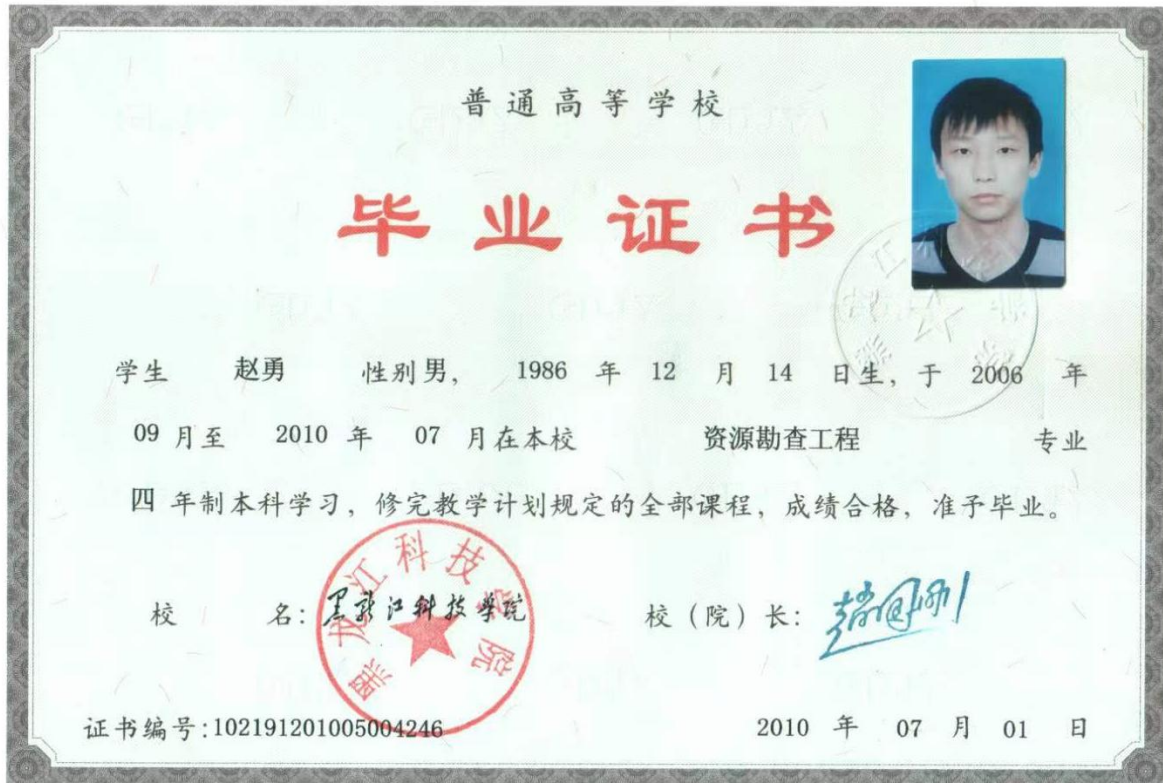 普通高等学校
毕业证书
学生 赵勇 性别男, 1986 年 12 月 14 日生, 于 2006 年
09 月至 2010 年 07 月在本校 资源勘查工程 专业
四 年制本科学习, 修完教学计划规定的全部课程, 成绩合格, 准予毕业。
校 名: 黑龙江科技学院 校(院)长:
黑龙江科技学院
证书编号:102191201005004246 2010 年 07 月 01 日